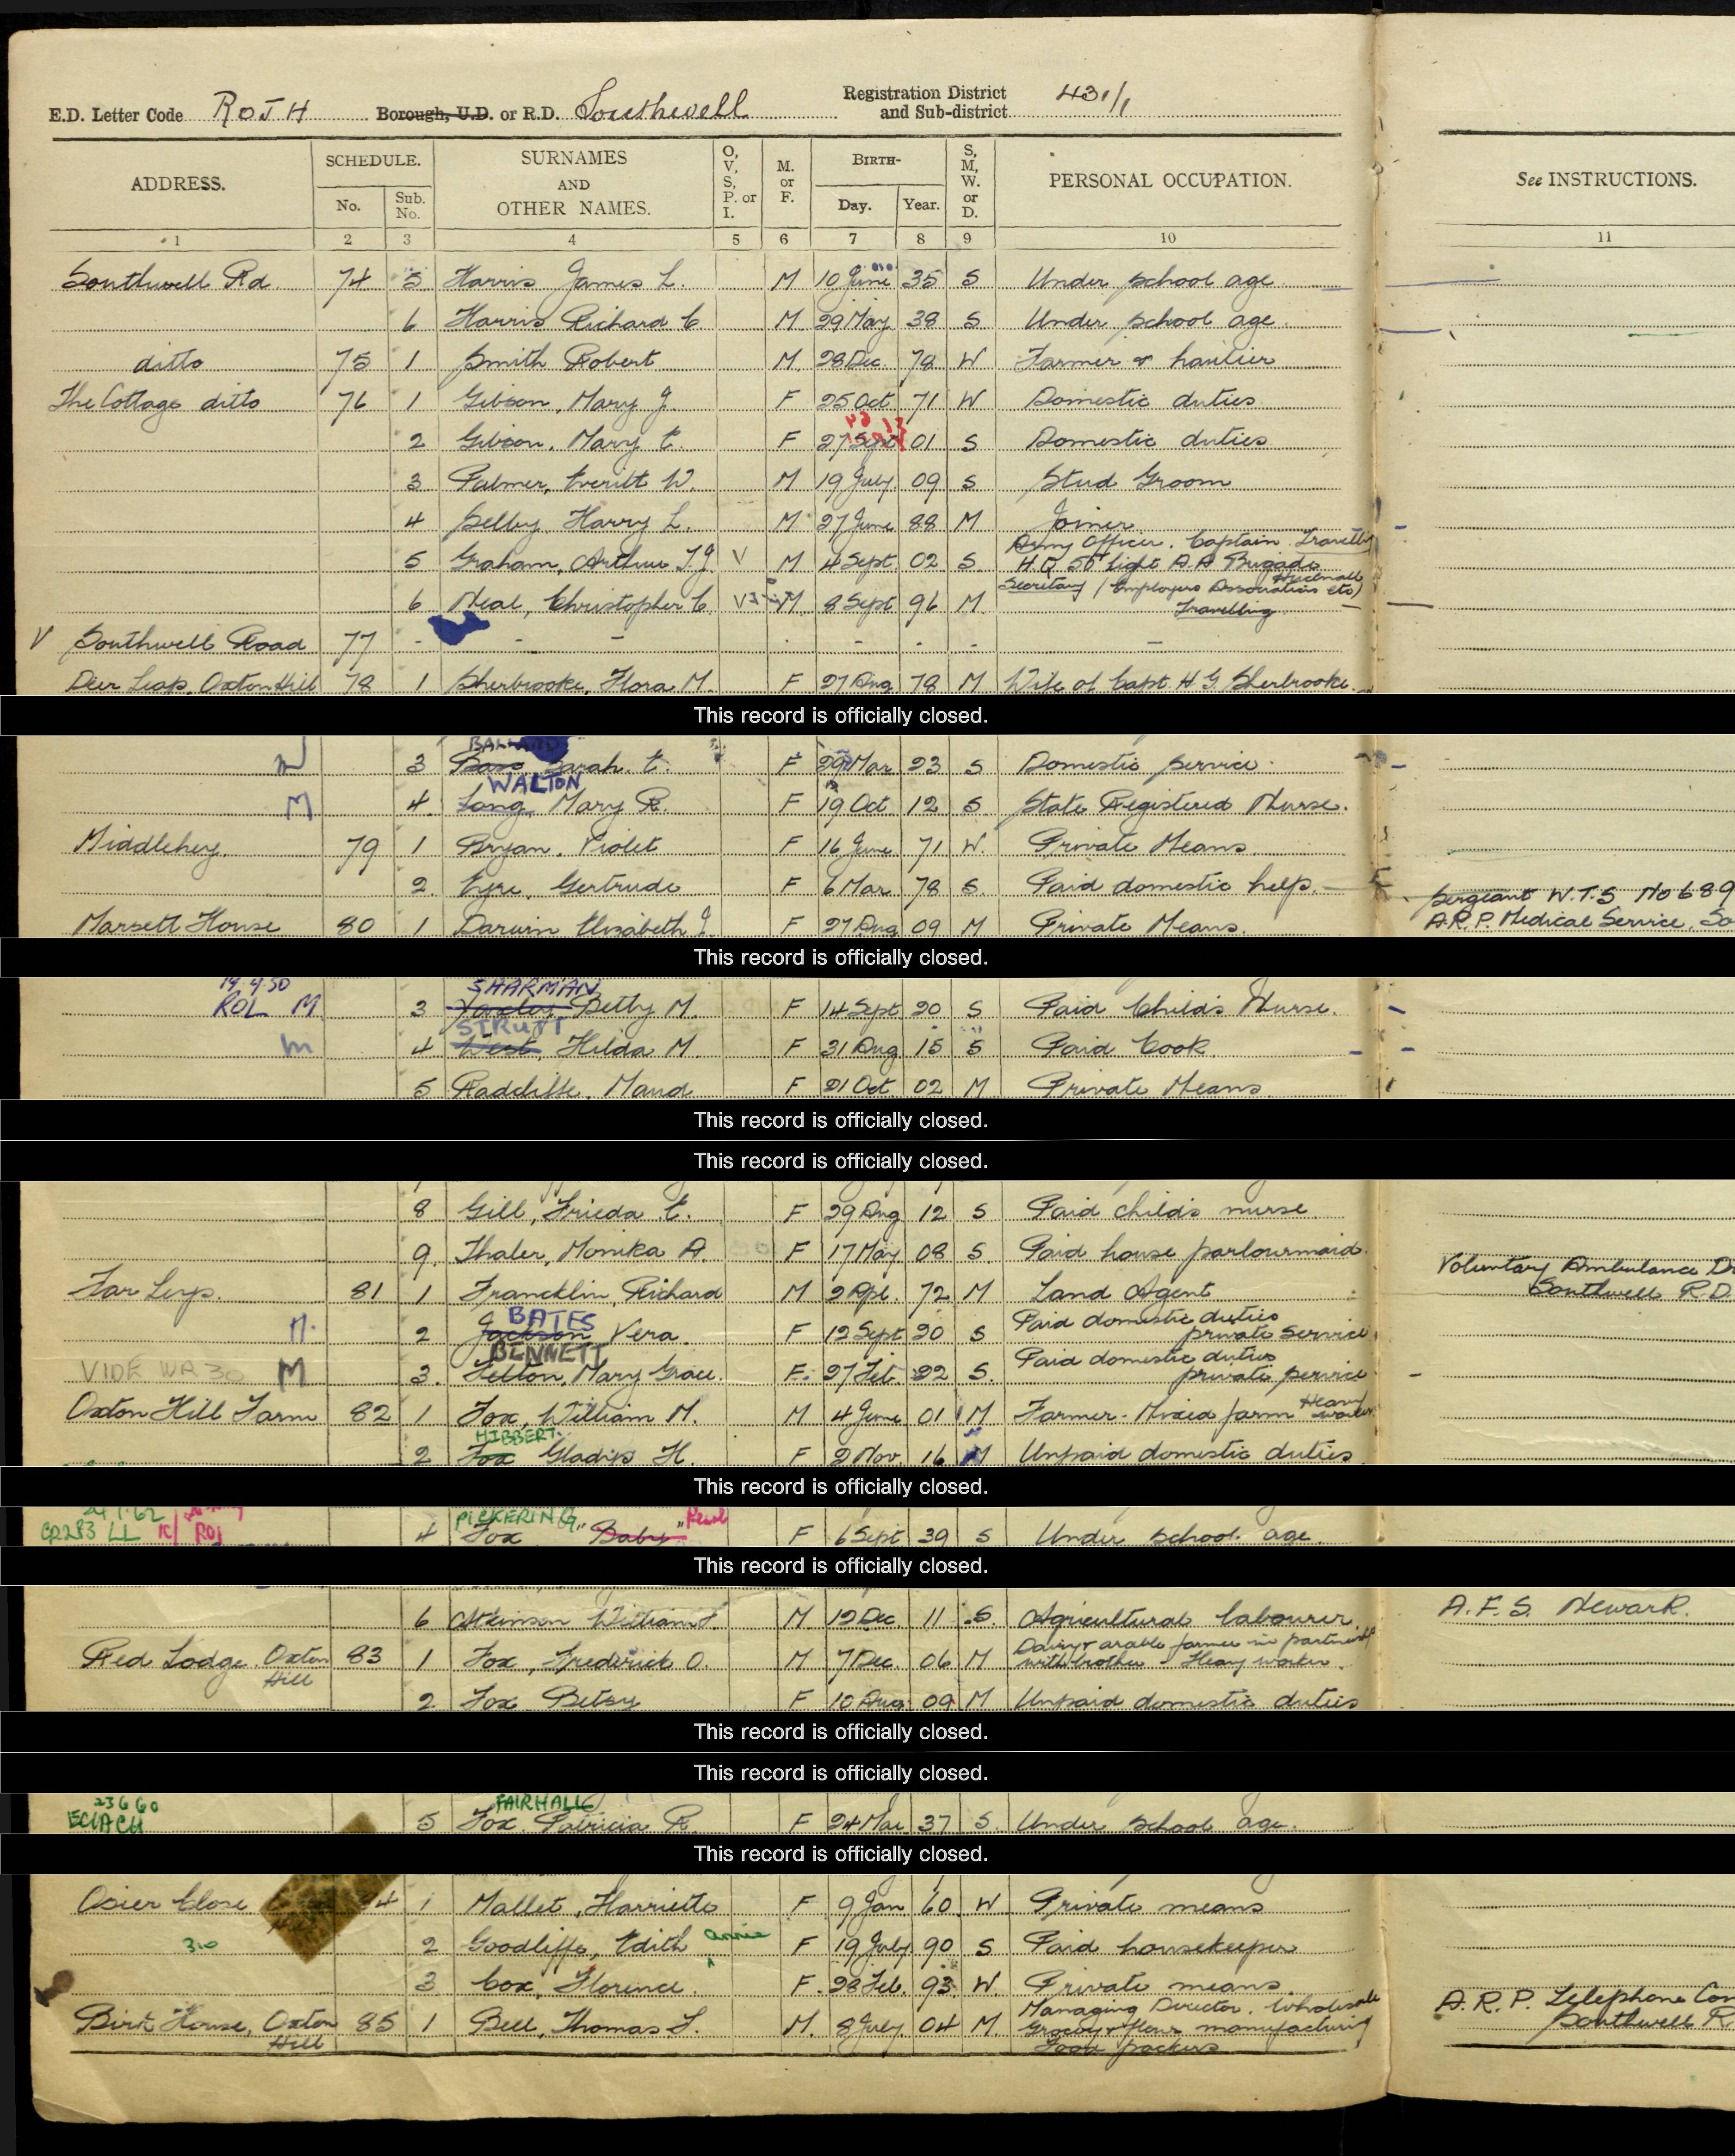 E.D. Letter Code ROJH Borough, U.D. or R.D. Southwell Registration District and Sub-district 431/1
ADDRESS. SCHEDULE. No. Sub. No. SURNAMES AND OTHER NAMES. O, V, S, P. or I. M. or F. BIRTH- Day. Year. S, M, W. or D. PERSONAL OCCUPATION. See INSTRUCTIONS.
1 2 3 4 5 6 7 8 9 10 11
Southwell Rd 74 5 Harris James L. M 10 June 35 S Under school age
6 Harris Richard C. M 29 May 38 S Under school age
ditto 75 1 Smith Robert M 28 Dec. 78 W Farmer & haulier
The Cottage ditto 76 1 Gibson, Mary J. F 25 Oct 71 W Domestic duties
2 Gibson, Mary E. F 27 Sept 01 S Domestic duties
3 Palmer, Everitt W. M 19 July 09 S Stud Groom
4 Selby Harry L. M 27 June 88 M Joiner
5 Graham, Arthur T.J. V M 4 Sept 02 S Army Officer. Captain. Travelling
H.Q. 50 Light A.A Brigade
6 Neal, Christopher C. V M 8 Sept 96 M Secretary (Employers Association etc)
Travelling
V Southwell Road 77 - - - - - - -
Deer Leap, Oxton Hill 78 1 Sherbrooke, Flora M. F 27 Aug 78 M Wife of Capt. H G Sherbrooke.
This record is officially closed.
BALLARD
M 3 Sarah. E. F 29 Mar 23 S Domestic Service.
WALTON
M 4 Long Mary R. F 19 Oct 12 S State Registered Nurse.
Middlehey. 79 1 Bryan, Violet F 16 June 71 W. Private Means
2. Eyre, Gertrude F 6 Mar 78 S. Paid domestic help.
Sergeant W.T.S No 689
Marsett House 80 1 Darwin Elizabeth J F 27 Aug 09 M Private Means. A.R.P. Medical Service. So
This record is officially closed.
19.4.50 SHARMAN
ROL M 3 Betty M. F 14 Sept 20 S Paid Child's Nurse.
STRUTT
M 4 West, Hilda M. F 31 Aug 15 S Paid Cook
5 Radcliffe, Maud F 21 Oct 02 M Private Means
This record is officially closed.
This record is officially closed.
8 Gill, Frieda E. F 29 Aug 12 S Paid child's nurse
9. Thaler, Monika A. F 17 May 08 S. Paid house parlourmaid.
Voluntary Ambulance Dr
Far Leys. 81 1 Francklin, Richard M 2 Apl. 72 M Land Agent Southwell R.D.
BATES
M. 2 Jackson Vera. F 12 Sept 20 S Paid domestic duties
private service
BENNETT
VIDE WA 30 M 3. Felton, Mary Grace. F. 27 Feb. 22 S. Paid domestic duties
private service
Oxton Hill Farm 82 1 Fox, William M. M 4 June 01 M Farmer - Mixed farm Heavy worker
HIBBERT
2 Fox Gladys H. F 2 Nov 16 M Unpaid domestic duties
This record is officially closed.
PICKERING
GR283 LL ROJ 4 Fox "Baby" F 6 Sept 39 S Under school age
This record is officially closed.
6 Atkinson William F. M 12 Dec. 11 S. Agricultural labourer A.F.S. Newark.
Red Lodge, Oxton Hill 83 1 Fox, Frederick O. M 7 Dec. 06 M Dairy & arable farmer in partnership
with brother - Heavy worker.
2 Fox Betsy F 10 Aug 09 M Unpaid domestic duties
This record is officially closed.
This record is officially closed.
23660 FAIRHALL
5 Fox Patricia R. F 24 Mar 37 S. Under school age.
This record is officially closed.
Osier Close 84 1 Mallet, Harriette F 9 Jan 60 W Private means
310 2 Goodliffe, Edith Annie F 19 July 90 S Paid housekeeper
3 Cox, Florence. F. 28 Feb. 93 W. Private means.
Birk House, Oxton Hill 85 1 Bell, Thomas F. M. 8 July 04 M. Managing Director. Wholesale
Grocery & flour manufacturing
Food packers
A.R.P. Telephone Con
Southwell R.